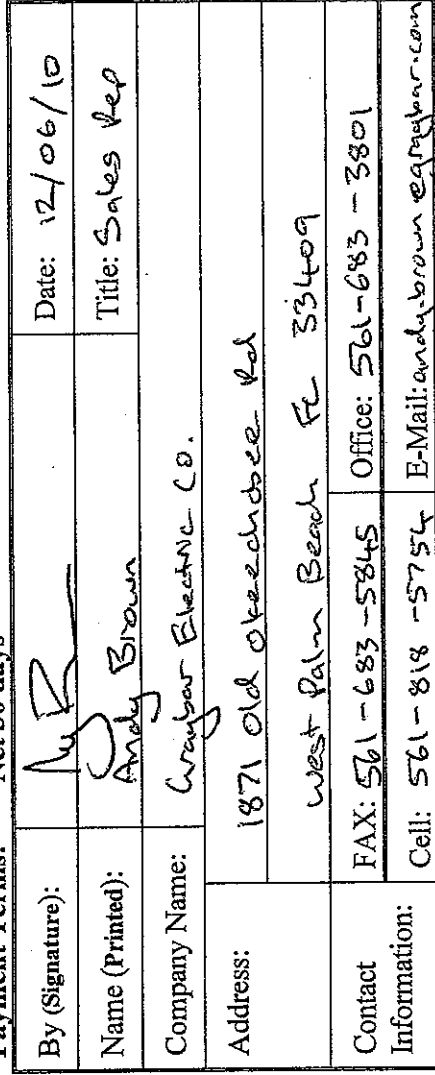 Payment Terms: Net 30 days
By (Signature): Date: 12/06/10
Name (Printed): Andy Brown Title: Sales Rep
Company Name: Graybar Electric Co.
Address: 1871 Old Okeechobee Rd
West Palm Beach FL 33409
Contact Information: FAX: 561-683-5845 Office: 561-683-3801
Cell: 561-818-5754 E-Mail: andy.brown@graybar.com